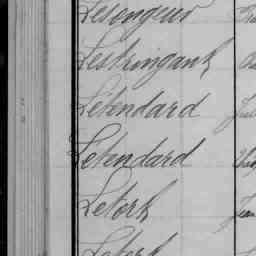 Lesongeur
Lestringant
Létendard
Létendard
Letork
Letork